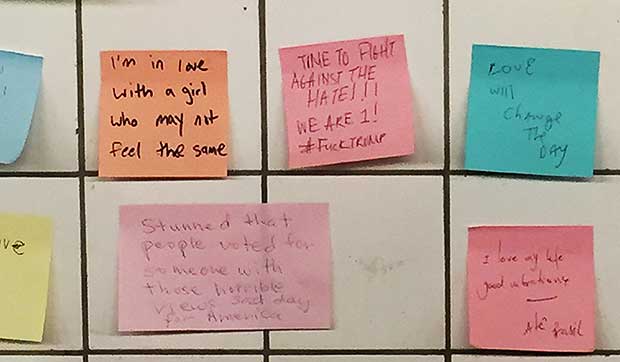 I'm in love
with a girl
who may not
feel the same
TIME TO FIGHT
AGAINST THE
HATE!!!
WE ARE 1!
#FUCKTRUMP
LOVE
will
Change
The
DAY
Stunned that
people voted for
someone with
those horrible
views sad day
for America
I love my life
good vibrations